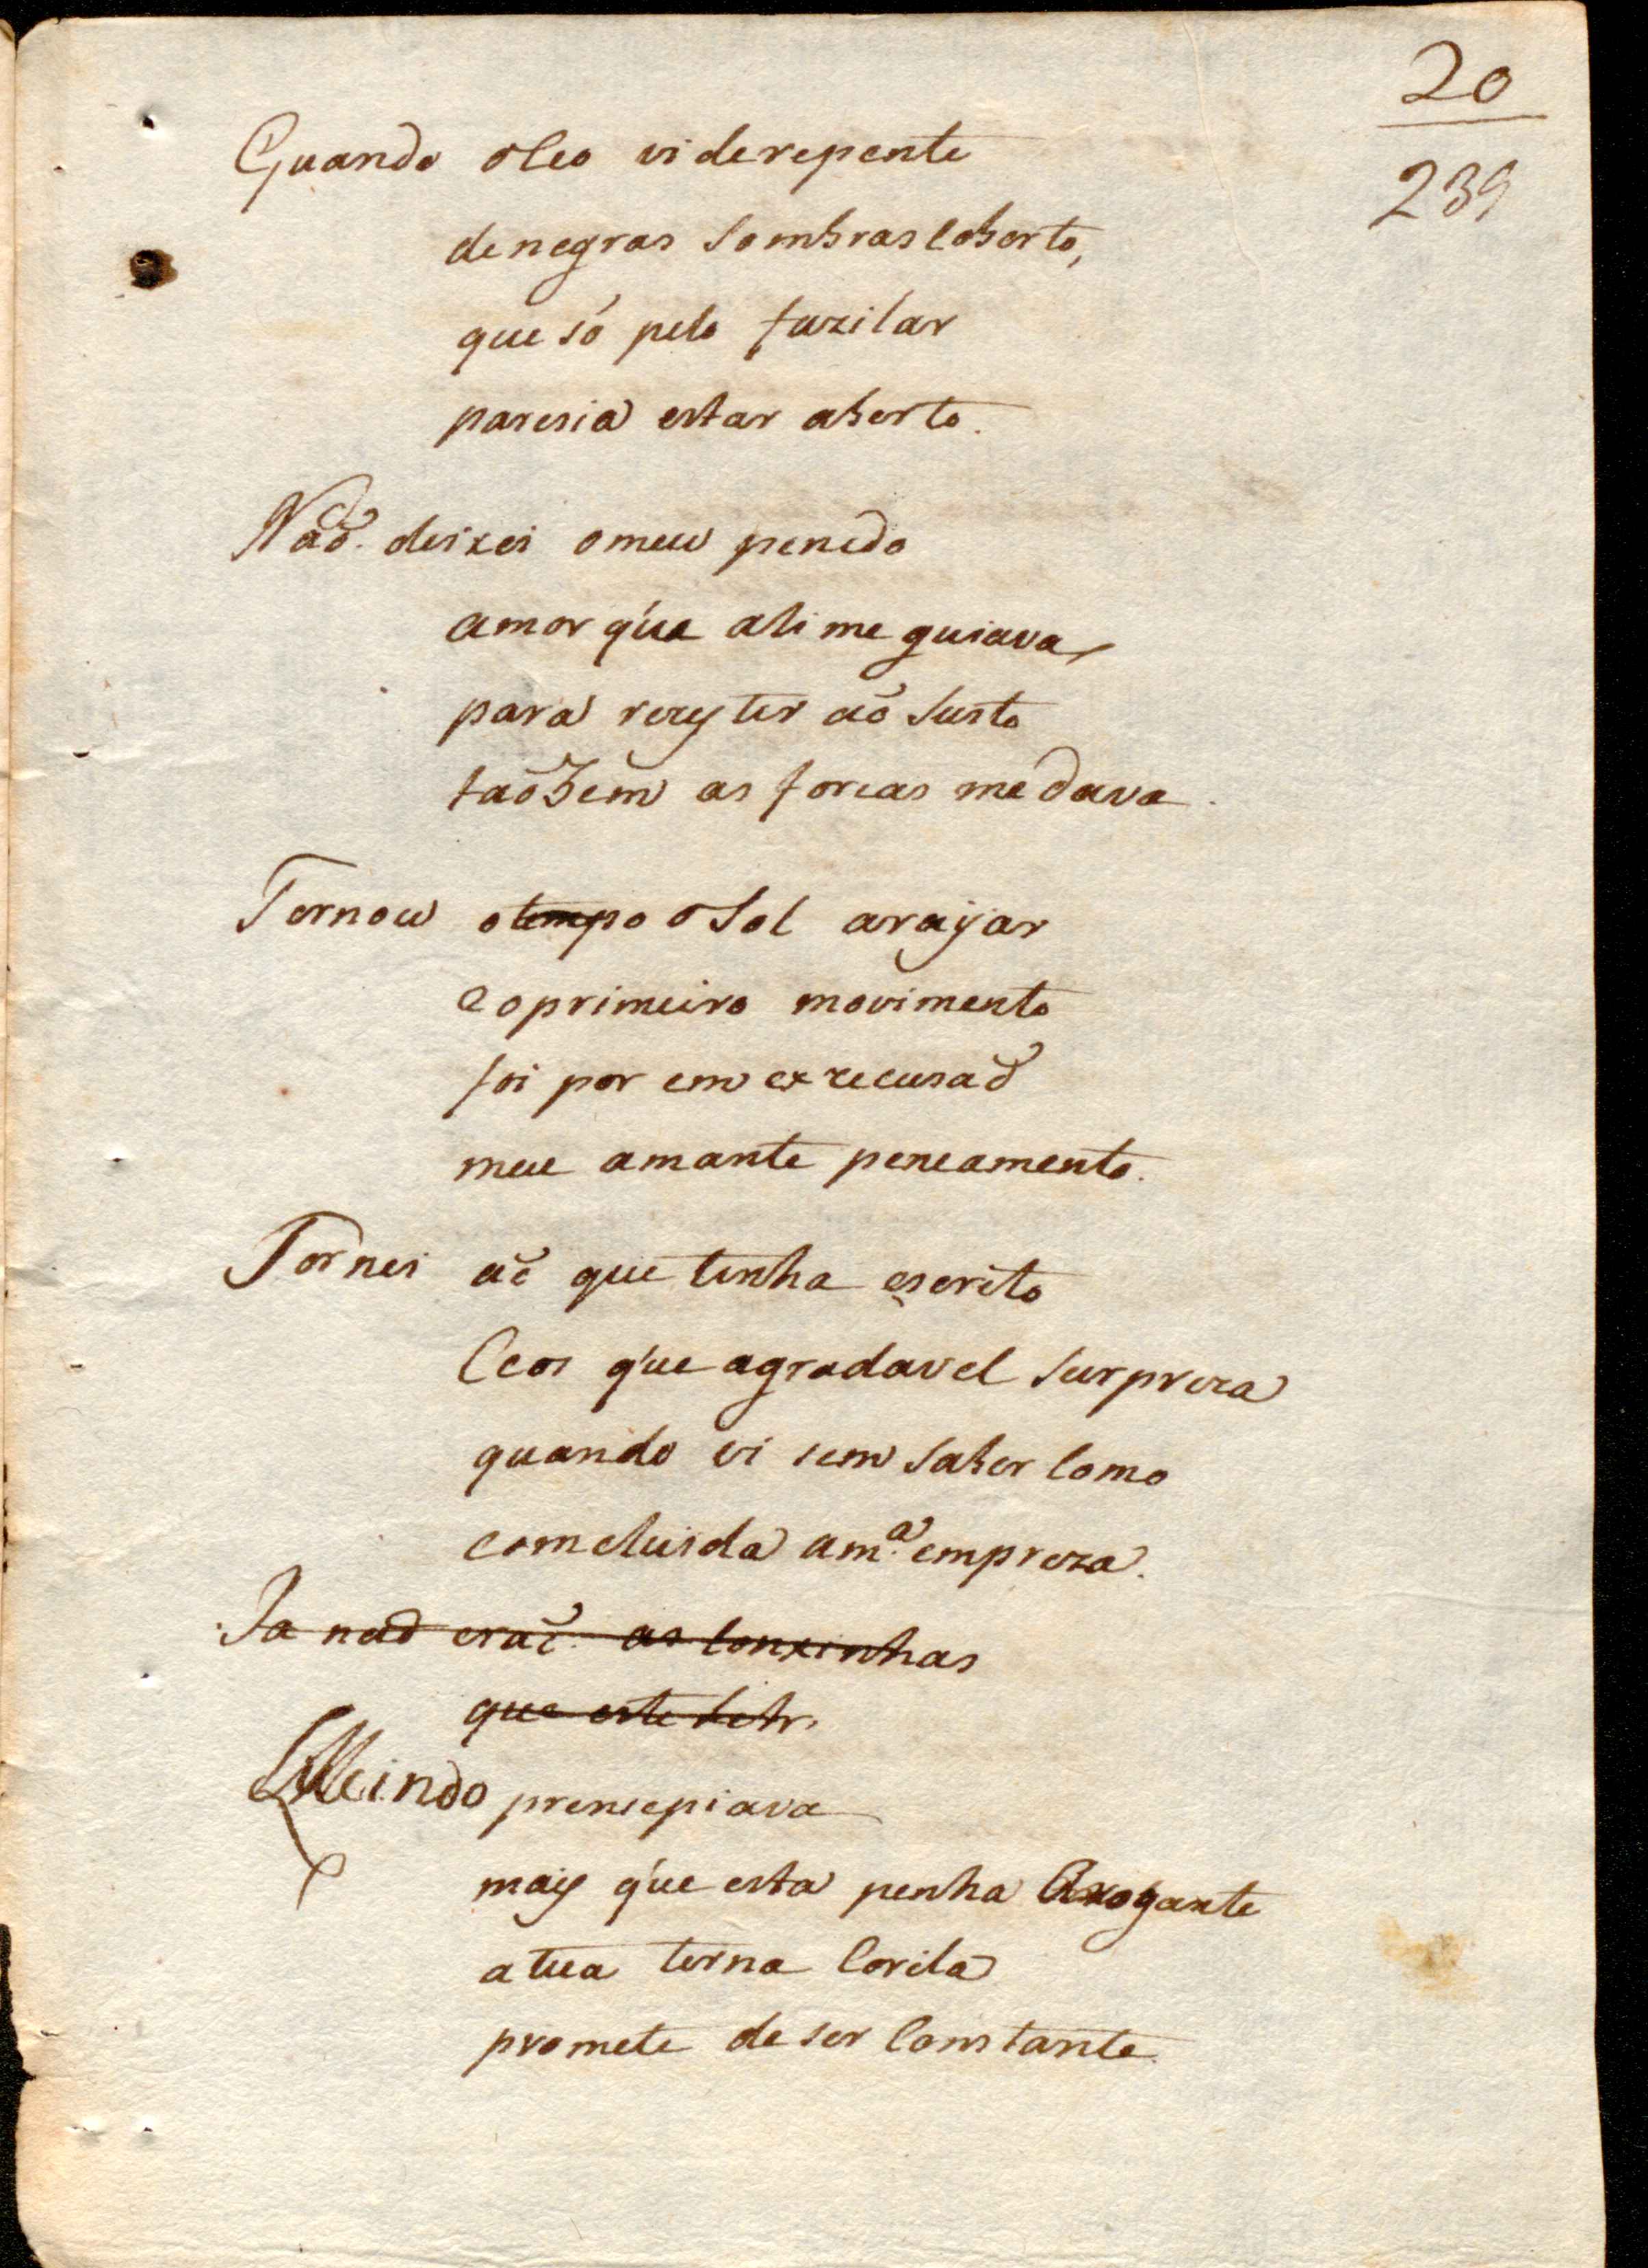 20
239
Quando o Ceo vi derepente
de negras Sombras Coberto,
que só pelo fuzilar
paresia estar aberto.
Naõ deixei o meu penedo
amor q'ue ali me guiava
para rezyster aõ Susto
taõbem as forcas me dava.
Tornou otempo o Sol araŷar
e o primeiro movimento
foi por em exzecusaõ
meu amante pencamento.
Tornei aõ que tinha escrito
Ceos q'ue agradavel Surpreza
quando vi sem Saber Como
comcluida a m.ª empreza.
Ja naõ eraõ as Conxinhas
que este Letr.
Lucindo prensepiava
mays q'ue esta penha Arogante
a tua terna Corila
promete de ser Constante.